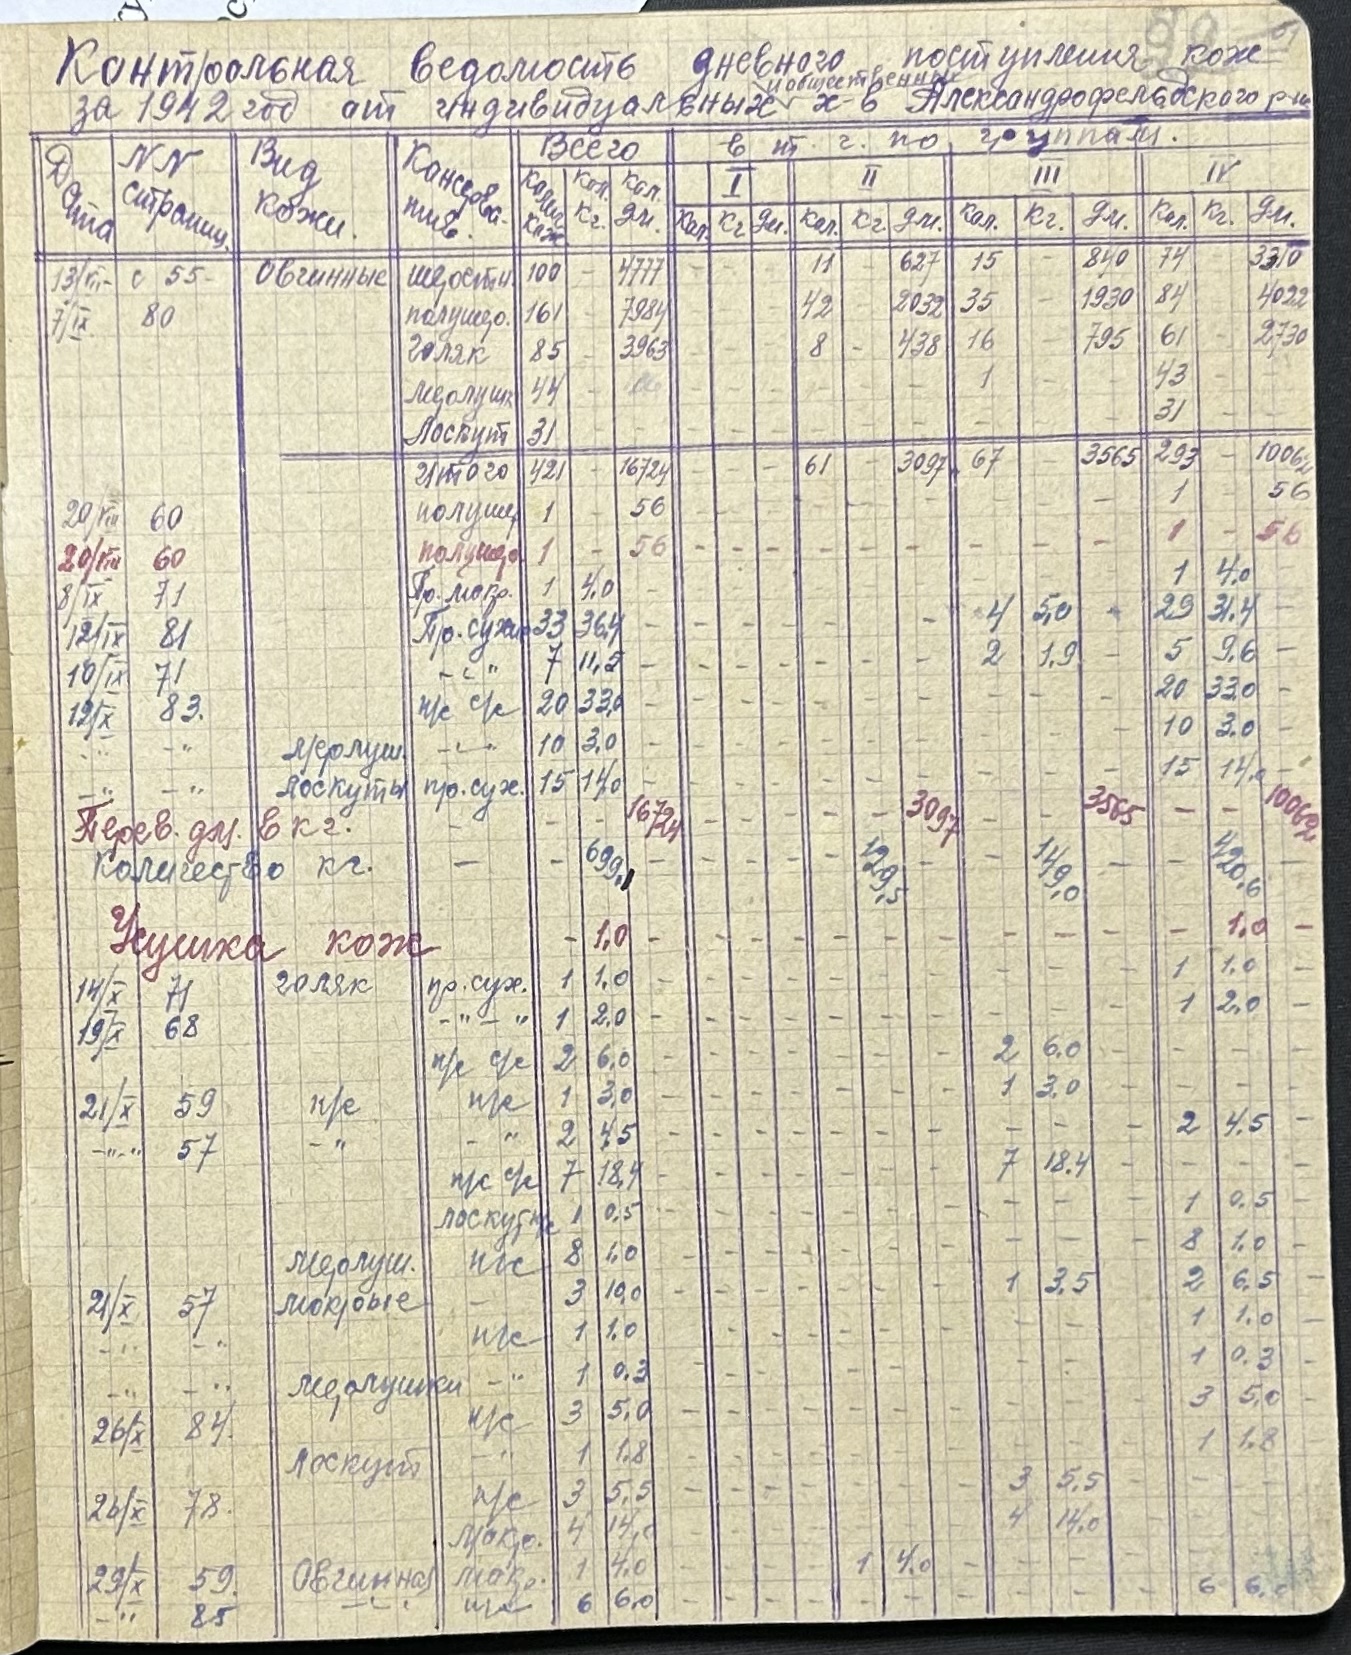 Контрольная ведомость дневного поступления кож
и общественных
за 1942 год от индивидуальных х-в Александрофельдского р-на
Дата NN страниц. Вид кожи. Консерва- Всего в т. ч. по группам.
колич. кож кол. кг. кол. дм. I II III IV
кол. кг дм. кол. кг дм. кол. кг. дм. кол. кг. дм.
13/VIII- с 55- Овчинные шерстн. 100 - 4777 - - - 11 - 627 15 - 840 74 - 3310
7/IX 80 полушер. 161 - 7984 - - - 42 - 2032 35 - 1930 84 - 4022
голяк 85 - 3963 - - - 8 - 438 16 - 795 61 - 2730
мерлушк 44 - - - - - - - 1 - - 43 - -
Лоскут 31 - - - - - - - - - - 31 - -
Итого 421 - 16724 - - - 61 - 3097 67 - 3565 293 - 10062
20/VIII 60 полушер 1 - 56 - - - - - - - - - 1 - 56
20/VIII 60 полушер. 1 - 56 - - - - - - - - - 1 - 56
8/IX 71 Пр. мокр. 1 4.0 - - - - - - - - - - 1 4.0 -
12/IX 81 Пр. сухие 33 36,4 - - - - - - - 4 5,0 - 29 31.4 -
10/IX 71 - " - " 7 11,5 - - - - - - - 2 1.9 - 5 9.6 -
12/X 83. п/с с/с 20 33,0 - - - - - - - - - - 20 33.0 -
- " - - " - мерлуш. - " - " 10 3.0 - - - - - - - - - - 10 3.0 -
- " - - " - Лоскуты пр. сух. 15 14,0 - - - - - - - - - - 15 14,0 -
Перев. дм. в кг. - - - 16724 - - - - - 3097 - - 3565 - - 10062
Количество кг. - - 699,1 - - - - - 129,5 - - 149,0 - - 420,6 -
Усушка кож - 1,0 - - - - - - - - - - - 1.0 -
14/X 71 голяк пр. сух. 1 1.0 - - - - - - - - - - 1 1.0 -
19/X 68 - " - " 1 2.0 - - - - - - - - - - 1 2.0 -
п/с с/с 2 6.0 - - - - - - - 2 6.0 - - - -
21/X 59 п/с п/с 1 3,0 - - - - - - - 1 3,0 - - - -
- " - " 57 - " - " 2 4,5 - - - - - - - - - - 2 4.5 -
п/с с/с 7 18,4 - - - - - - - 7 18.4 - - - -
лоскут п/с 1 0.5 - - - - - - - - - - 1 0.5 -
мерлуш. п/с 8 1.0 - - - - - - - - - - 8 1.0 -
21/X 57 мокрые - 3 10,0 - - - - - - - 1 3.5 - 2 6.5 -
- " - - " п/с 1 1.0 - - - - - - - - - - 1 1.0 -
- " - - " мерлушки - " 1 0.3 - - - - - - - - - - 1 0.3 -
26/X 84. п/с 3 5.0 - - - - - - - - - - 3 5,0 -
Лоскут - " 1 1.8 - - - - - - - - - - 1 1.8 -
26/X 78. п/с 3 5.5 - - - - - - - 3 5.5 - - - -
мокр. 4 14,0 - - - - - - - 4 14.0 - - - -
29/X 59. Овчинная мокр. 1 4.0 - - - - 1 4.0 - - - - - - -
- " 85 - " - п/с 6 6.0 - - - - - - - - - - 6 6.0